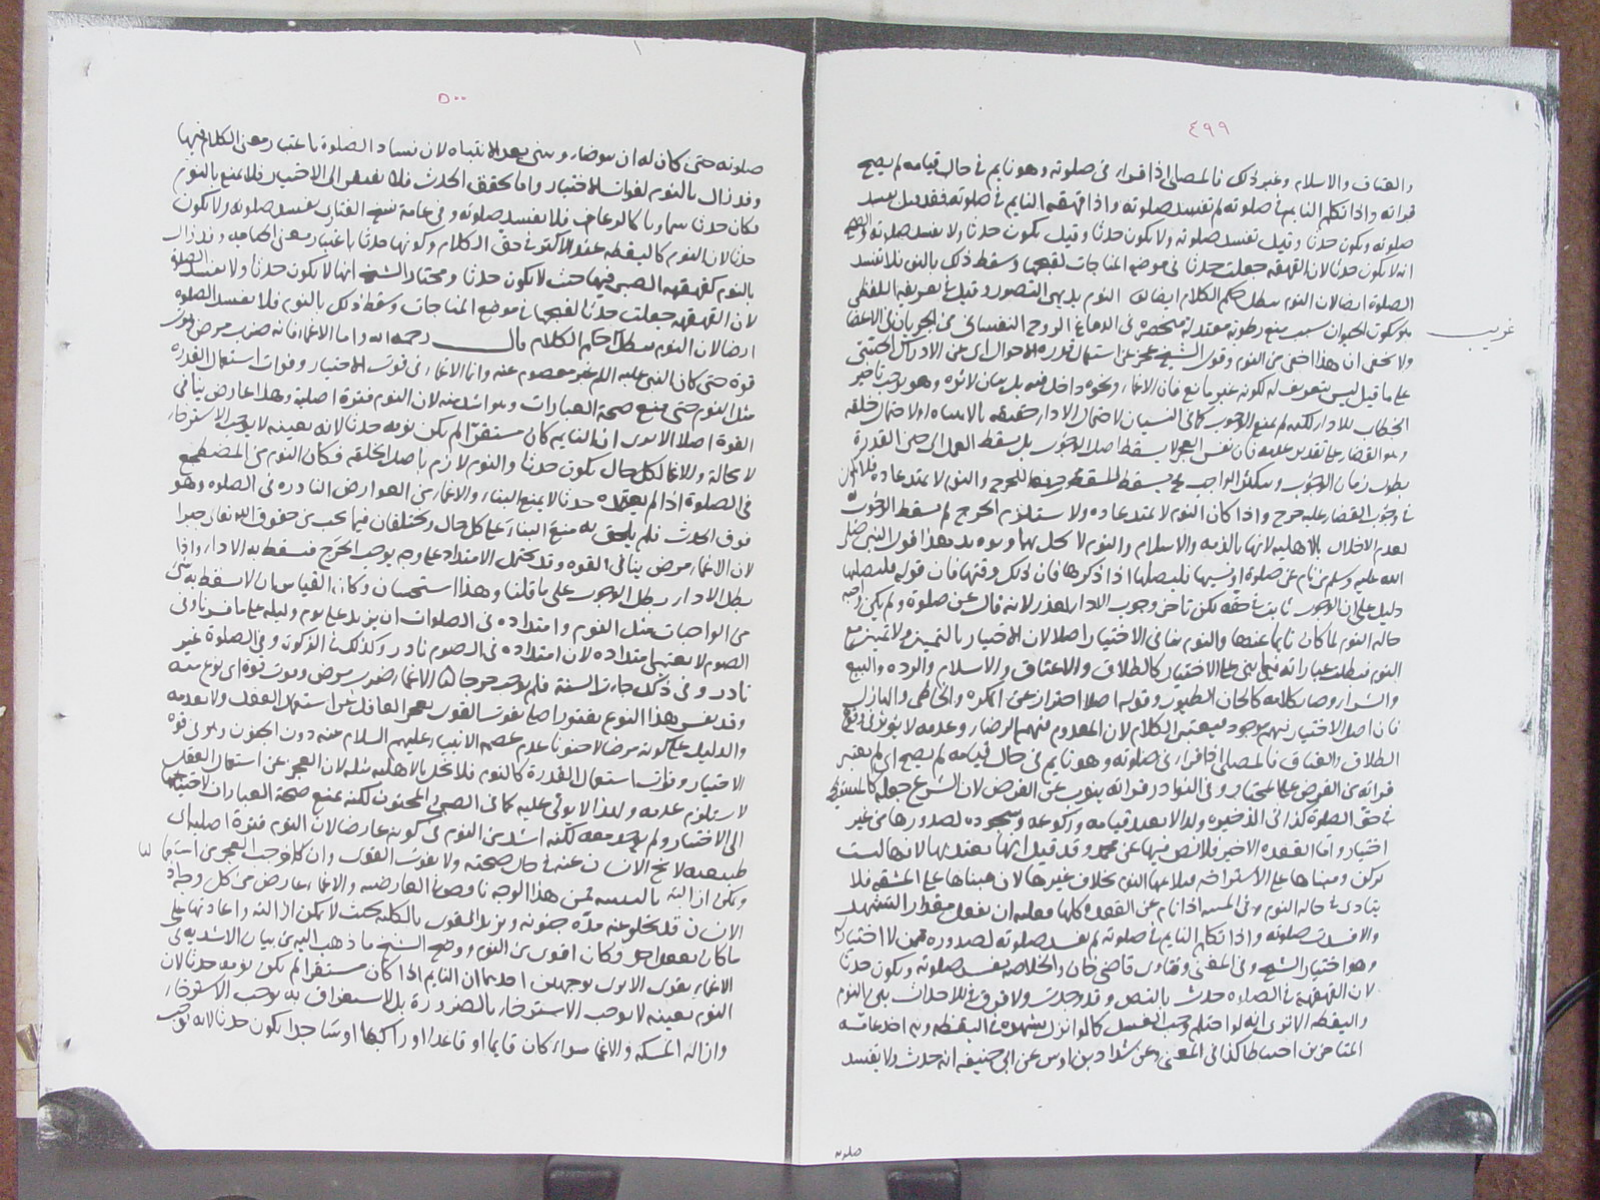 ٤٩٩
والعتاق والاسلام وغير ذلك فالمصلى اذا قراء في صلوته وهو نايم في حال قيامه لم يصح
قراته واذا تكلم النايم في صلوته لم تفسد صلوته واذا قهقهه النايم في صلوته فقد قيل تفسد
صلوته ويكون حدثا وقيل تفسد صلوته ولا يكون حدثا وقيل يكون حدثا ولا تفسد صلوته والصحيح
انه لا يكون حدثا لان القهقهه جعلت حدثا في موضع المناجات لقبحها وسقط ذلك بالنوم فلا تفسد
الصلوة ايضا لان النوم يبطل حكم الكلام ايضا قوله النوم بديهي التصور وقيل في تعريفه اللفظي
هو سكون الحيوان بسبب منع رطوبة معتدلة منحصرة في الدماغ الروح النفساني من الجريان في الاعضا
غريب
ولا يخفى ان هذا اخفى من النوم وقول الشيخ عجز عن استعمال قدرة الاحوال اى عن الادراك الحسى
على ما قيل ليس بتعريف له لكونه غير مانع فان الاغماء ونحوه داخل فيه بل بيان لاثره وهو يوجب تاخير
الخطاب للاداء لكنه لم يمنع الوجوب كما في النسيان لاحتمال الاداء حقيقه بالانتباه او لاحتمال خلفه
وهو القضاء على تقدير عدمه فان نفس العجز لا يسقط اصل الوجوب بل يسقط العمل الى حين القدرة
بطول زمان الوجوب ويتكثر الواجب فح يسقط للحرج والنوم لا يمتد عاده فلا يكون
في وجوب القضاء عليه حرج واذا كان النوم لا يمتد عاده ولا يستلزم الحرج لم يسقط الوجوب
لعدم الاخلال بالاهليه لانها بالذمه والاسلام والنوم لا يخل بهما ويؤيد هذا قول النبي صلى
الله عليه وسلم من نام عن صلوة او نسيها فليصلها اذا ذكرها فان ذلك وقتها فان قوله فليصلها
دليل على ان الوجوب ثابت في حقه لكن تاخر وجوب الاداء لعذر لانه قال عن صلوة ولو لم يكن واجبه
حاله النوم لما كان نايما عنها والنوم ينافي الاختيار اصلا لان الاختيار بالتمييز ولا تمييز مع
النوم فبطلت عباراته فيما يبنى على الاختيار كالطلاق والاعتاق والاسلام والرده والبيع
والشراء وصار كلامه كالحان الطيور وقوله اصلا احتراز عن المكره والخاطى والهازل
فان اصل الاختيار فيهم موجود فيعتبر الكلام لان المعدوم فيهم الرضاء وعدمه لا يؤثر في وقوع
الطلاق والعتاق فالمصلى اذا قراء في صلوته وهو نايم في حال قيامه لم يصح اى لم يعتبر
قراته من الفرض على المختار وفي النوادر قراته ينوب عن الفرض لان الشرع جعله كالمستيقظ
في حق الصلوة كذا في الذخيره ولذا لا يعتد قيامه وركوعه وسجوده لصدورها من غير
اختيار واما القعده الاخير فلا نص فيها عن محمد وقد قيل انها يعتد بها لانها ليست
بركن ومبناها على الاستراحه فيلائمها النوم بخلاف غيرها لان مبناها على المشقه فلا
يتادى في حاله النوم وفي المنيه اذا نام عن القعده كلها فعليه ان يقعد مقدار التشهد
والا فسدت صلوته واذا تكلم النايم في صلوته لم تفسد صلوته لصدوره ممن لا اختيار له
وهو اختيار الشيخ وفي المغنى وفتاوى قاضى خان والخلاصه تفسد صلوته ويكون حدثا
لان القهقهه في الصلوه حدث بالنص وقد وجدت ولا فرق في الاحداث بين النوم
واليقظه الا ترى انه لو احتلم وجب الغسل كما لو انزل بشهوه في اليقظه وبه اخذ عامه
المتاخرين احتياطا كذا في المغنى وعن شداد بن اوس عن ابي حنيفه انه حدث ولا يفسد
صلوته
٥٠٠
صلوته حتى كان له ان يتوضاء ويبنى بعد الانتباه لان فساد الصلوة باعتبار معنى الكلام فيها
وقد زال بالنوم لفوات الاختيار واما تحقق الحدث فلا يفتقر الى الاختيار فلا يمتنع بالنوم
فكان حدثا سماويا كالرعاف فلا تفسد صلوته وفي عامة نسخ الفتاوى تفسد صلوته ولا يكون
حدثا لان النوم كاليقظه عند الاكثر في حق الكلام وكونها حدثا باعتبار معنى الجنايه وقد زال
بالنوم كقهقهه الصبي فيها حيث لا يكون حدثا ومختار الشيخ انها لا يكون حدثا ولا تفسد الصلوة
لان القهقهه جعلت حدثا لقبحها في موضع المناجات وسقط ذلك بالنوم فلا تفسد الصلوه
ايضا لان النوم يبطل حكم الكلام قال رحمه الله واما الاغماء فانه ضرب مرض يفوت
قوة حتى كان النبي عليه السلم غير معصوم عنه وانما الاغماء في فوت الاختيار وفوات استعمال القدره
مثل النوم حتى يمنع صحة العبارات وهو اشد منه لان النوم فترة اصلية وهذا عارض ينافي
القوة اصلا الا ترى ان النايم اذا كان مستقرا لم يكن نومه حدثا لانه بعينه لا يوجب الاسترخاء
لا محالة والاغما بكل حال يكون حدثا والنوم لازم باصل الخلقه فكان النوم من المضطجع
في الصلوة اذا لم يتعمده حدثا لا يمنع البناء والاغماء من العوارض النادره في الصلوه وهو
فوق الحدث فلم يلحق به منع البناء على كل حال ويختلفان فيما يجب من حقوق الله تعالى جبرا
لان الاغماء مرض ينافي القوه وقد يحتمل الامتداد على وجه يوجب الحرج فيسقط به الاداء واذا
بطل الاداء بطل الوجوب على ما قلنا وهذا استحسان وكان القياس ان لا يسقط به شئ
من الواجبات مثل النوم وامتداده في الصلوات ان يزيد على يوم وليله على ما فسرنا وفي
الصوم لا يعتبر امتداده لان امتداده في الصوم نادر وكذلك في الزكوة وفي الصلوة غير
نادر وفي ذلك جاءت السنة فلم يوجب حرجا الاغماء ضرب مرض وفوت قوة اى نوع منه
وقد يفسر هذا النوع بفتور اصلى يفوت القوى يعجز العاقل عن استعمال العقل ولا يعدمه
والدليل على كونه مرضا لا جنونا عدم عصمه الانبياء عليهم السلام عنه دون الجنون وهو في فوة
الاختيار وفوات استعمال القدرة كالنوم فلا يخل بالاهليه مثله لان العجز عن استعمال العقل
لا يستلزم عدمه ولذا لا يولى عليه كما في الصبي والمجنون لكنه يمنع صحة العبارات لاحتياجها
الى الاختيار ولم يوجد معه لكنه اشد من النوم في كونه عارضا لان النوم فترة اصليه اى
طبيعيه لا يخ الانسان عنه في حال صحته ولا يفوت القوى وان كان يوجب العجز عن استعمالها
ويمكن ازالته بالتنبيه فمن هذا الوجه ناقص في العارضيه والاغماء عارض من كل وجه اذ
الانسان قد يخلو عنه مدة حيوته ويزيل القوى بالكليه بحيث لا يمكن ازالته واعادتها على
ما كان يفعل احد وكان اقوى من النوم ووضح الشيخ ما ذهب اليه من بيان الاشديه في
الاغماء بقوله الا ترى بوجهين احدهما ان النايم اذا كان مستقرا لم يكن نومه حدثا لان
النوم بعينه لا يوجب الاسترخاء بالضرورة بل الاستغراق به يوجب الاسترخاء
وازاله المسكه والاغما سواء كان قايما او قاعدا او راكعا او ساجدا يكون حدثا لانه يوجب